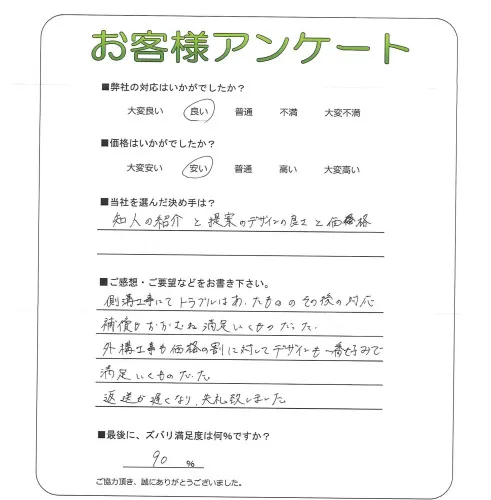 お客様アンケート
■弊社の対応はいかがでしたか？
大変良い 良い 普通 不満 大変不満
■価格はいかがでしたか？
大変安い 安い 普通 高い 大変高い
■当社を選んだ決め手は？
知人の紹介と提案のデザインの良さと価格
■ご感想・ご要望などをお書き下さい。
側溝工事にてトラブルはあったもののその後の対応
補償もおおむね満足いくものだった.
外構工事も価格の割に対してデザインも一番好みで
満足いくものだった
返送が遅くなり、失礼致しました
■最後に、ズバリ満足度は何％ですか？
90 ％
ご協力頂き、誠にありがとうございました。